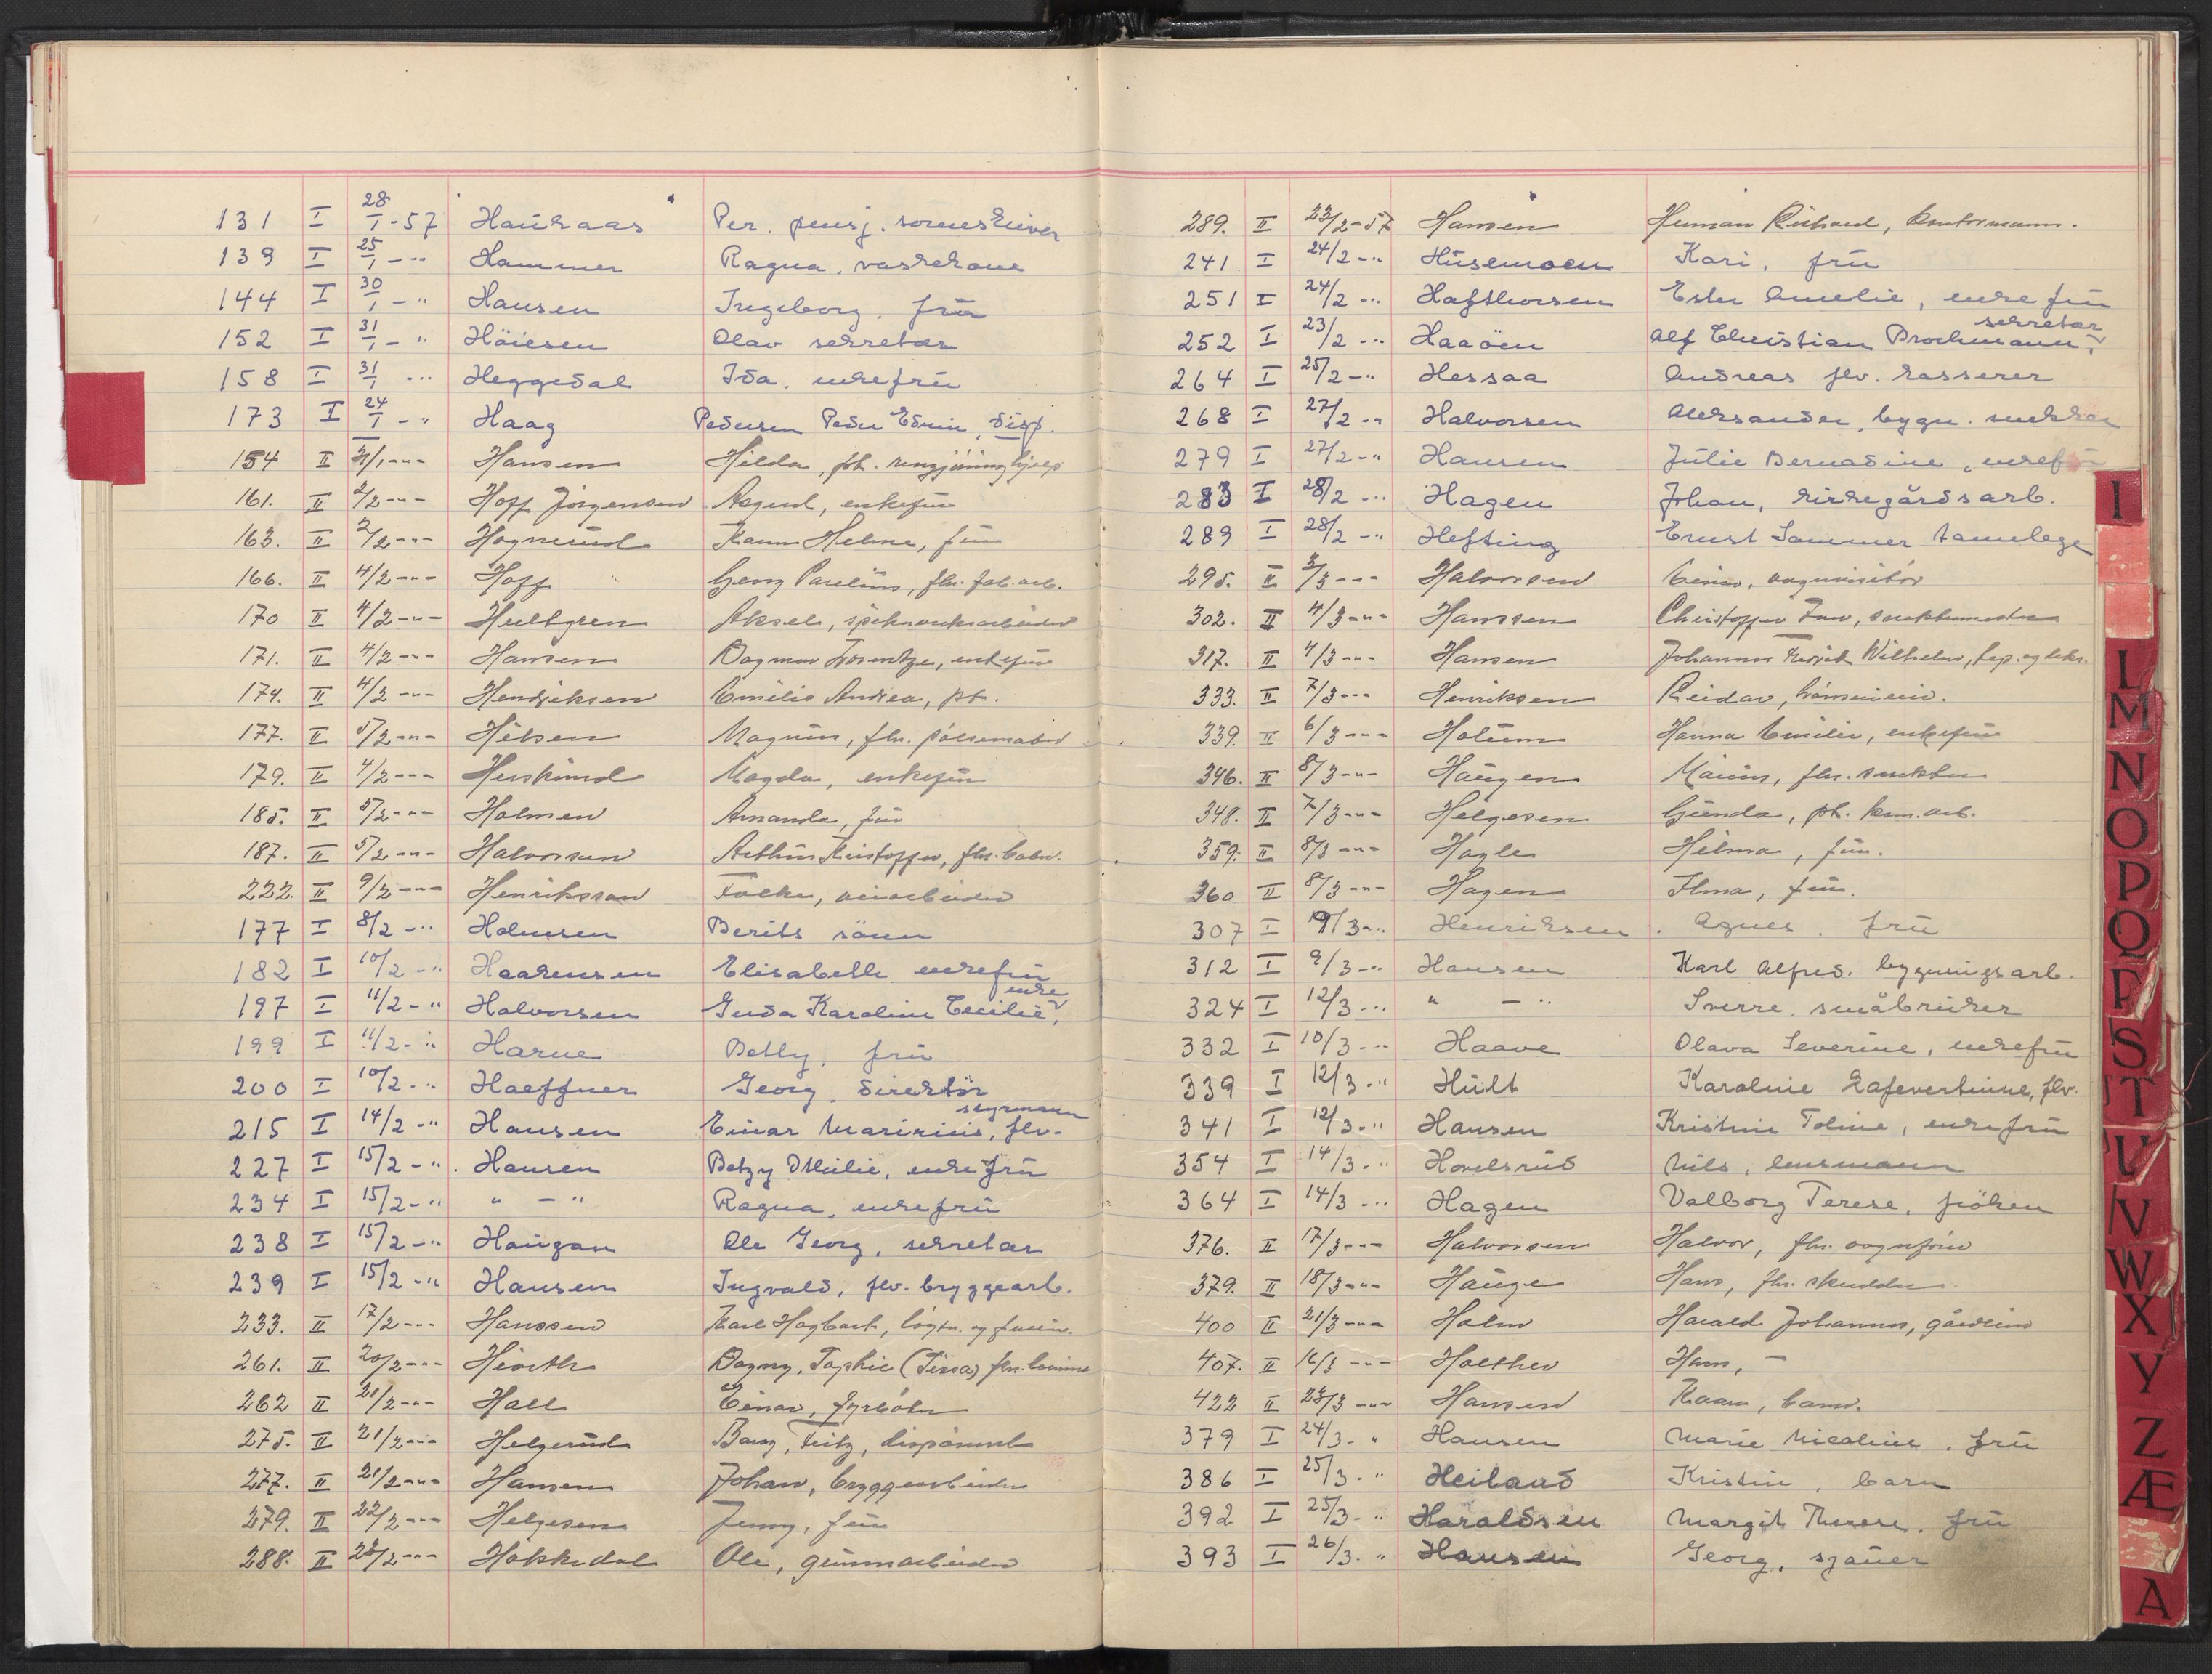 131 I 28/1-57 Haukaas Per. pensj. soveskriver
139 I 25/1 - " Hammer Ragna, vaskekone
144 I 30/1 - " Hansen Ingeborg, frü
152 I 31/1 - " Höiesen Olav sekretær
158 I 31/1 - " Heggedal Ida. enkefrü
173 I 24/1 - " Haag Pedersen Peder Edvin, disp.
154 II 31/1 - " - Hansen Hilda, fh. rengjöringshjelp
161. II 2/2 - " - Hoff Jörgensen Asgerd, enkefrü
163. II 2/2 - " - Hogmünd Helene, früe
166. II 4/2 - " - Hoff Georg Parelius, fhv. fab.arb.
170 II 4/2 - " - Hultgren Aksel,
171. II 4/2 - " - Hansen Dagmar Lorentze, enkefrü
174. II 4/2 - " - Hendriksen Emilie Andrea, ph.
177. II 5/2 - " - Hilsen Magnüs, fhv. pölsemaker
179. II 4/2 - " - Herskind Magda, enkefrü
185. II 5/2 - " - Holmen Amanda, frü
187. II 5/2 - " - Halvorsen Arthür Kristoffer, fhv.
222. II 9/2 - " - Henriksson Folke, veiarbeider
177 I 8/2 - " Holmsen Berits sönn
182 I 10/2 - " Haakensen Elisabeth enkefrü
197 I 11/2 - " Halvorsen Gerda Karoline Cecilie, enke
199 I 11/2 - " Harne Betty, frü
200 I 10/2 - " Haeffner Georg, direktör
215 I 14/2 - " Hansen Einar Marinius, flv. styrmann
227 I 15/2 - " Hansen Betzy Otilie, enkefrü
234 I 15/2 - " " - " Ragna, enkefrü
238 I 15/2 - " Haügan Ole Georg, sekretær
239 I 15/2 - " Hansen Ingvald, flv. bryggearb.
233. II 17/2 - " - Hanssen Karl Hagbart,
261. II 20/2 - " - Hiorth Dagny, Sophie (Tissa) fhv.
262 II 21/2 - " - Hall Einar, fyrböter
275. II 21/2 - " - Helgerüd Fritz, disponent
277. II 21/2 - " - Hansen Johan, bryggearbeider
279. II 22/2 - " - Helgesen Jenny, frü
288. II 23/2 - " - Hökkedal Ole, gümmiarbeider
289. II 23/2 - 57 Hansen Herman Richard, kontormann.
241 I 24/2 - " Hüsemoen Kari, frü
251 I 24/2 - " Hafthorsen Ester Amelie, enkefrü
252 I 23/2 - " Haaöen Alf Christian Prochmann, sekretær
264 I 25/2 - " Hessaa Andreas flv. kasserer
268 I 27/2 - " Halvorsen Aleksander, bygn. snekker
279 I 27/2 - " Hansen Julie Bernadine, enkefrü
283 I 28/2 - " Hagen Johan, kirkegårdsarb.
289 I 28/2 - " Hefting Ernst Sommer tannlege
295. II 3/3 - " - Halvorsen Einar, vognvisitör
302. II 4/3 - " - Hanssen Christoffer
317. II 4/3 - " - Hansen Johannes Fredrik Wilhelm, tap. og dekr.
333. II 7/3 - " - Henriksen Reidar,
339. II 6/3 - " - Holüm Hanna Emilie, enkefrü
346. II 8/3 - " - Haügen fhv. snekker
348. II 7/3 - " - Helgesen Günda, ph. kom. arb.
359. II 8/3 - " - Hagle Hilma, frü.
360 II 8/3 - " - Hagen Ilma, frü.
307 I 9/3 - " Henriksen Agnes, frü
312 I 9/3 - " Hansen Karl Alfred. bygningsarb.
324 I 12/3 - " " - " Sverre. småbruker
332 I 10/3 - " Haave Olava Severine, enkefrü
339 I 12/3 - " Hült Karoline flv.
341 I 12/3 - " Hansen Kristine Toline, enkefrü
354 I 14/3 - " Hovelsrüd Nils, lensmann
364 I 14/3 - " Hagen Valborg Terese, fröken
376. II 17/3 - " - Halvorsen Halvor, fhv. vognförer
379. II 18/3 - " - Haüge Hans, fhv. skredder
400 II 21/3 - " - Holm Harald Johannes, gårdeier
407. II 16/3 - " - Holther Hans, -
422 II 23/3 - " - Hansen Kaare, barn.
379 I 24/3 - " Hansen Marie Nicoline, frü
386 I 25/3 - " Heiland Kristin, barn
392 I 25/3 - " Haraldsen Margit Therese. frü
393 I 26/3 - " Hansen Georg, sjaüer
I
L
M
N
O
P
Q
R
S
T
U
V
W
X
Y
Z
Æ
A